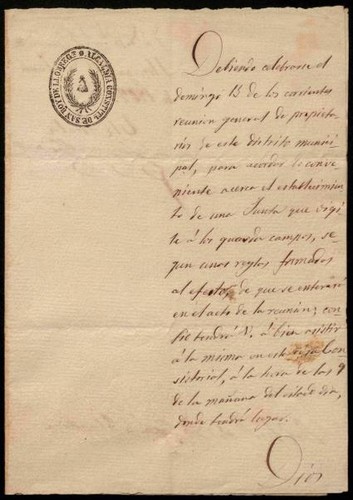 ALCALDIA CONSTITL. DE SAN BOY DE LLOBREGT.
Debiendo celebrarse el
domingo 15 de los corrientes
reunion general de propieta-
rios de este distrito munici-
pal, para acordar lo conve-
niente acerca el establecimien-
to de una Junta que vigi-
le á los guardas campos, se-
gun unos reglos formados
al efecto, de que se enterará
en el acto de la reunion; con-
fio tendrá V. á bien asistir
á la misma en esta Casa Con-
sistorial, á la hora de las 9
de la mañana del citado dia,
donde tendrá lugar.
Dios